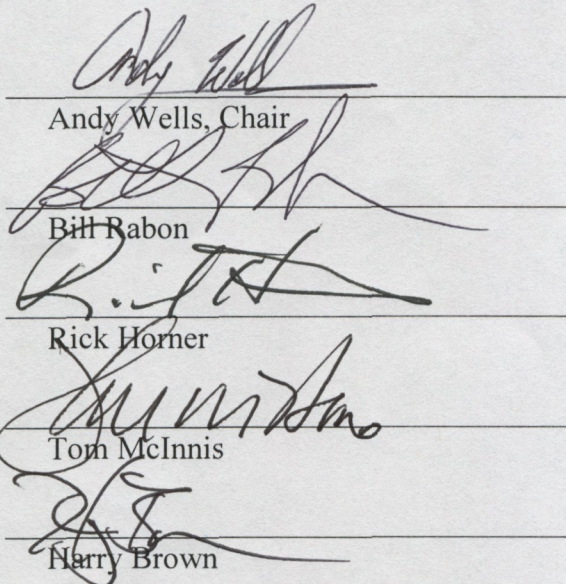 Andy Wells
Andy Wells, Chair
Bill Rabon
Rick Horner
Tom McInnis
Harry Brown